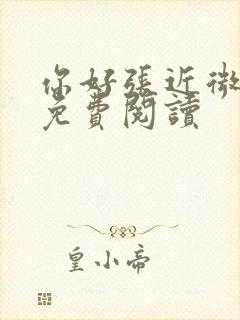 你好張近微
免費閱讀
皇小帝